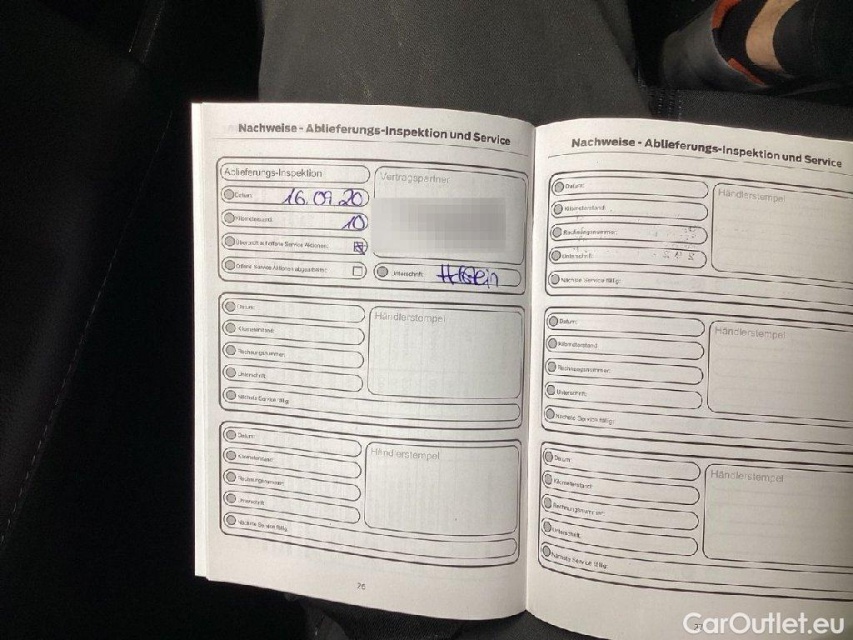 Nachweise - Ablieferungs-Inspektion und Service
Ablieferungs-Inspektion
Vertragspartner
Datum: 16.09.20
Kilometerstand: 10
Überprüft auf offene Service Aktionen:
Offene Service Aktionen abgearbeitet:
Unterschrift:
Datum:
Händlerstempel
Kilometerstand:
Rechnungsnummer:
Unterschrift:
Nächste Service fällig:
Datum:
Händlerstempel
Kilometerstand:
Rechnungsnummer:
Unterschrift:
Nächste Service fällig:
26
Nachweise - Ablieferungs-Inspektion und Service
Datum:
Händlerstempel
Kilometerstand:
Rechnungsnummer:
Unterschrift:
Nächste Service fällig:
Datum:
Händlerstempel
Kilometerstand:
Rechnungsnummer:
Unterschrift:
Nächste Service fällig:
Datum:
Händlerstempel
Kilometerstand:
Rechnungsnummer:
Unterschrift:
Nächste Service fällig:
CarOutlet.eu